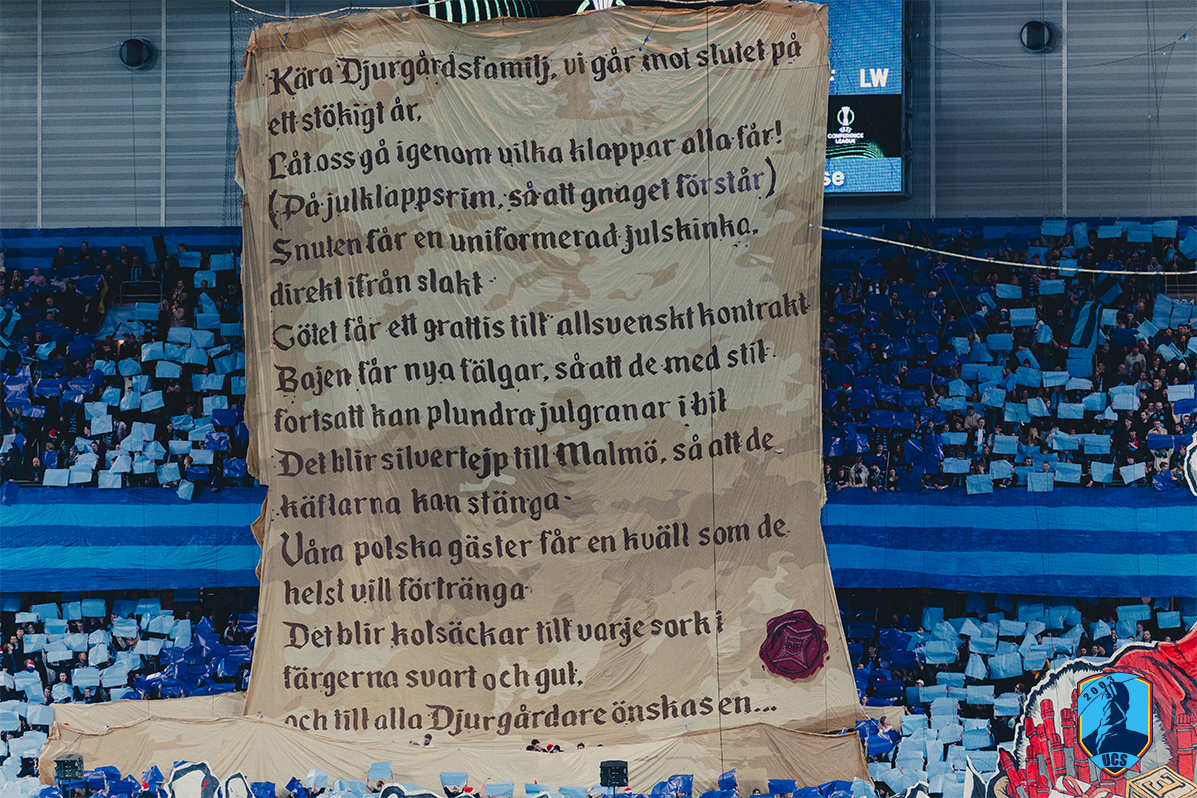 LW
CONFERENCE
LEAGUE
se
Kära Djurgårdsfamilj, vi går mot slutet på
ett stökigt år,
Låt oss gå igenom vilka klappar alla får!
(På julklappsrim, så att gnaget förstår)
Snuten får en uniformerad julskinka,
direkt ifrån slakt
Götet får ett grattis till allsvenskt kontrakt
Bajen får nya fälgar, så att de med stil
fortsatt kan plundra julgranar i bil
Det blir silvertejp till Malmö, så att de
käftarna kan stänga
Våra polska gäster får en kväll som de
helst vill förtränga
Det blir kolsäckar till varje sork i
färgerna svart och gul,
och till alla Djurgårdare önskas en...
2003
UCS